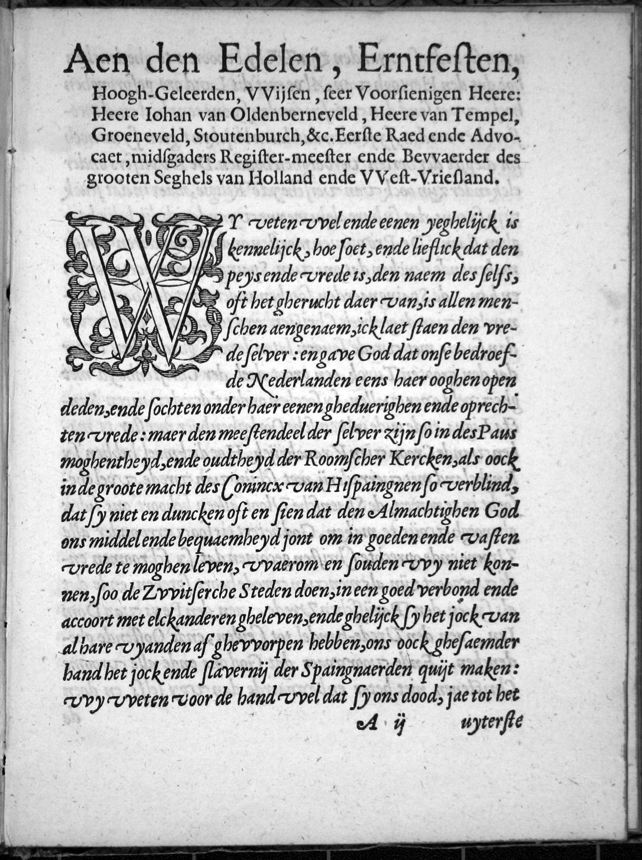 Aen den Edelen, Erntfesten,
Hoogh-Geleerden, VVijsen, seer Voorsienigen Heere:
Heere Iohan van Oldenberneveld, Heere van Tempel,
Groeneveld, Stoutenburch, &c. Eerste Raed ende Advo-
caet, midsgaders Register-meester ende Bevvaerder des
grooten Seghels van Holland ende VVest-Vriesland.
WY vveten vvel ende eenen yeghelijck is
kennelijck, hoe soet, ende lieflick dat den
peys ende vrede is, den naem des selfs,
oft het gherucht daer van, is allen men-
schen aengenaem, ick laet staen den vre-
de selver: en gave God dat onse bedroef-
de Nederlanden eens haer ooghen open
deden, ende sochten onder haer eenen gheduerighen ende oprech-
ten vrede: maer den meestendeel der selver zijn so in des Paus
moghentheyd, ende oudtheyd der Roomscher Kercken, als oock
in de groote macht des Conincx van Hispaingnen so verblind,
dat sy niet en duncken oft en sien dat den Almachtighen God
ons middel ende bequaemheyd jont om in goeden ende vasten
vrede te moghen leven, vvaerom en souden vvy niet kon-
nen, soo de Zvvitserche Steden doen, in een goed verbond ende
accoort met elckanderen gheleven, ende ghelijck sy het jock van
al hare vyanden af ghevvorpen hebben, ons oock ghesaemder
hand het jock ende slavernij der Spaingnaerden quijt maken:
vvy vveten voor de hand vvel dat sy ons dood, jae tot het
A ij uyterste